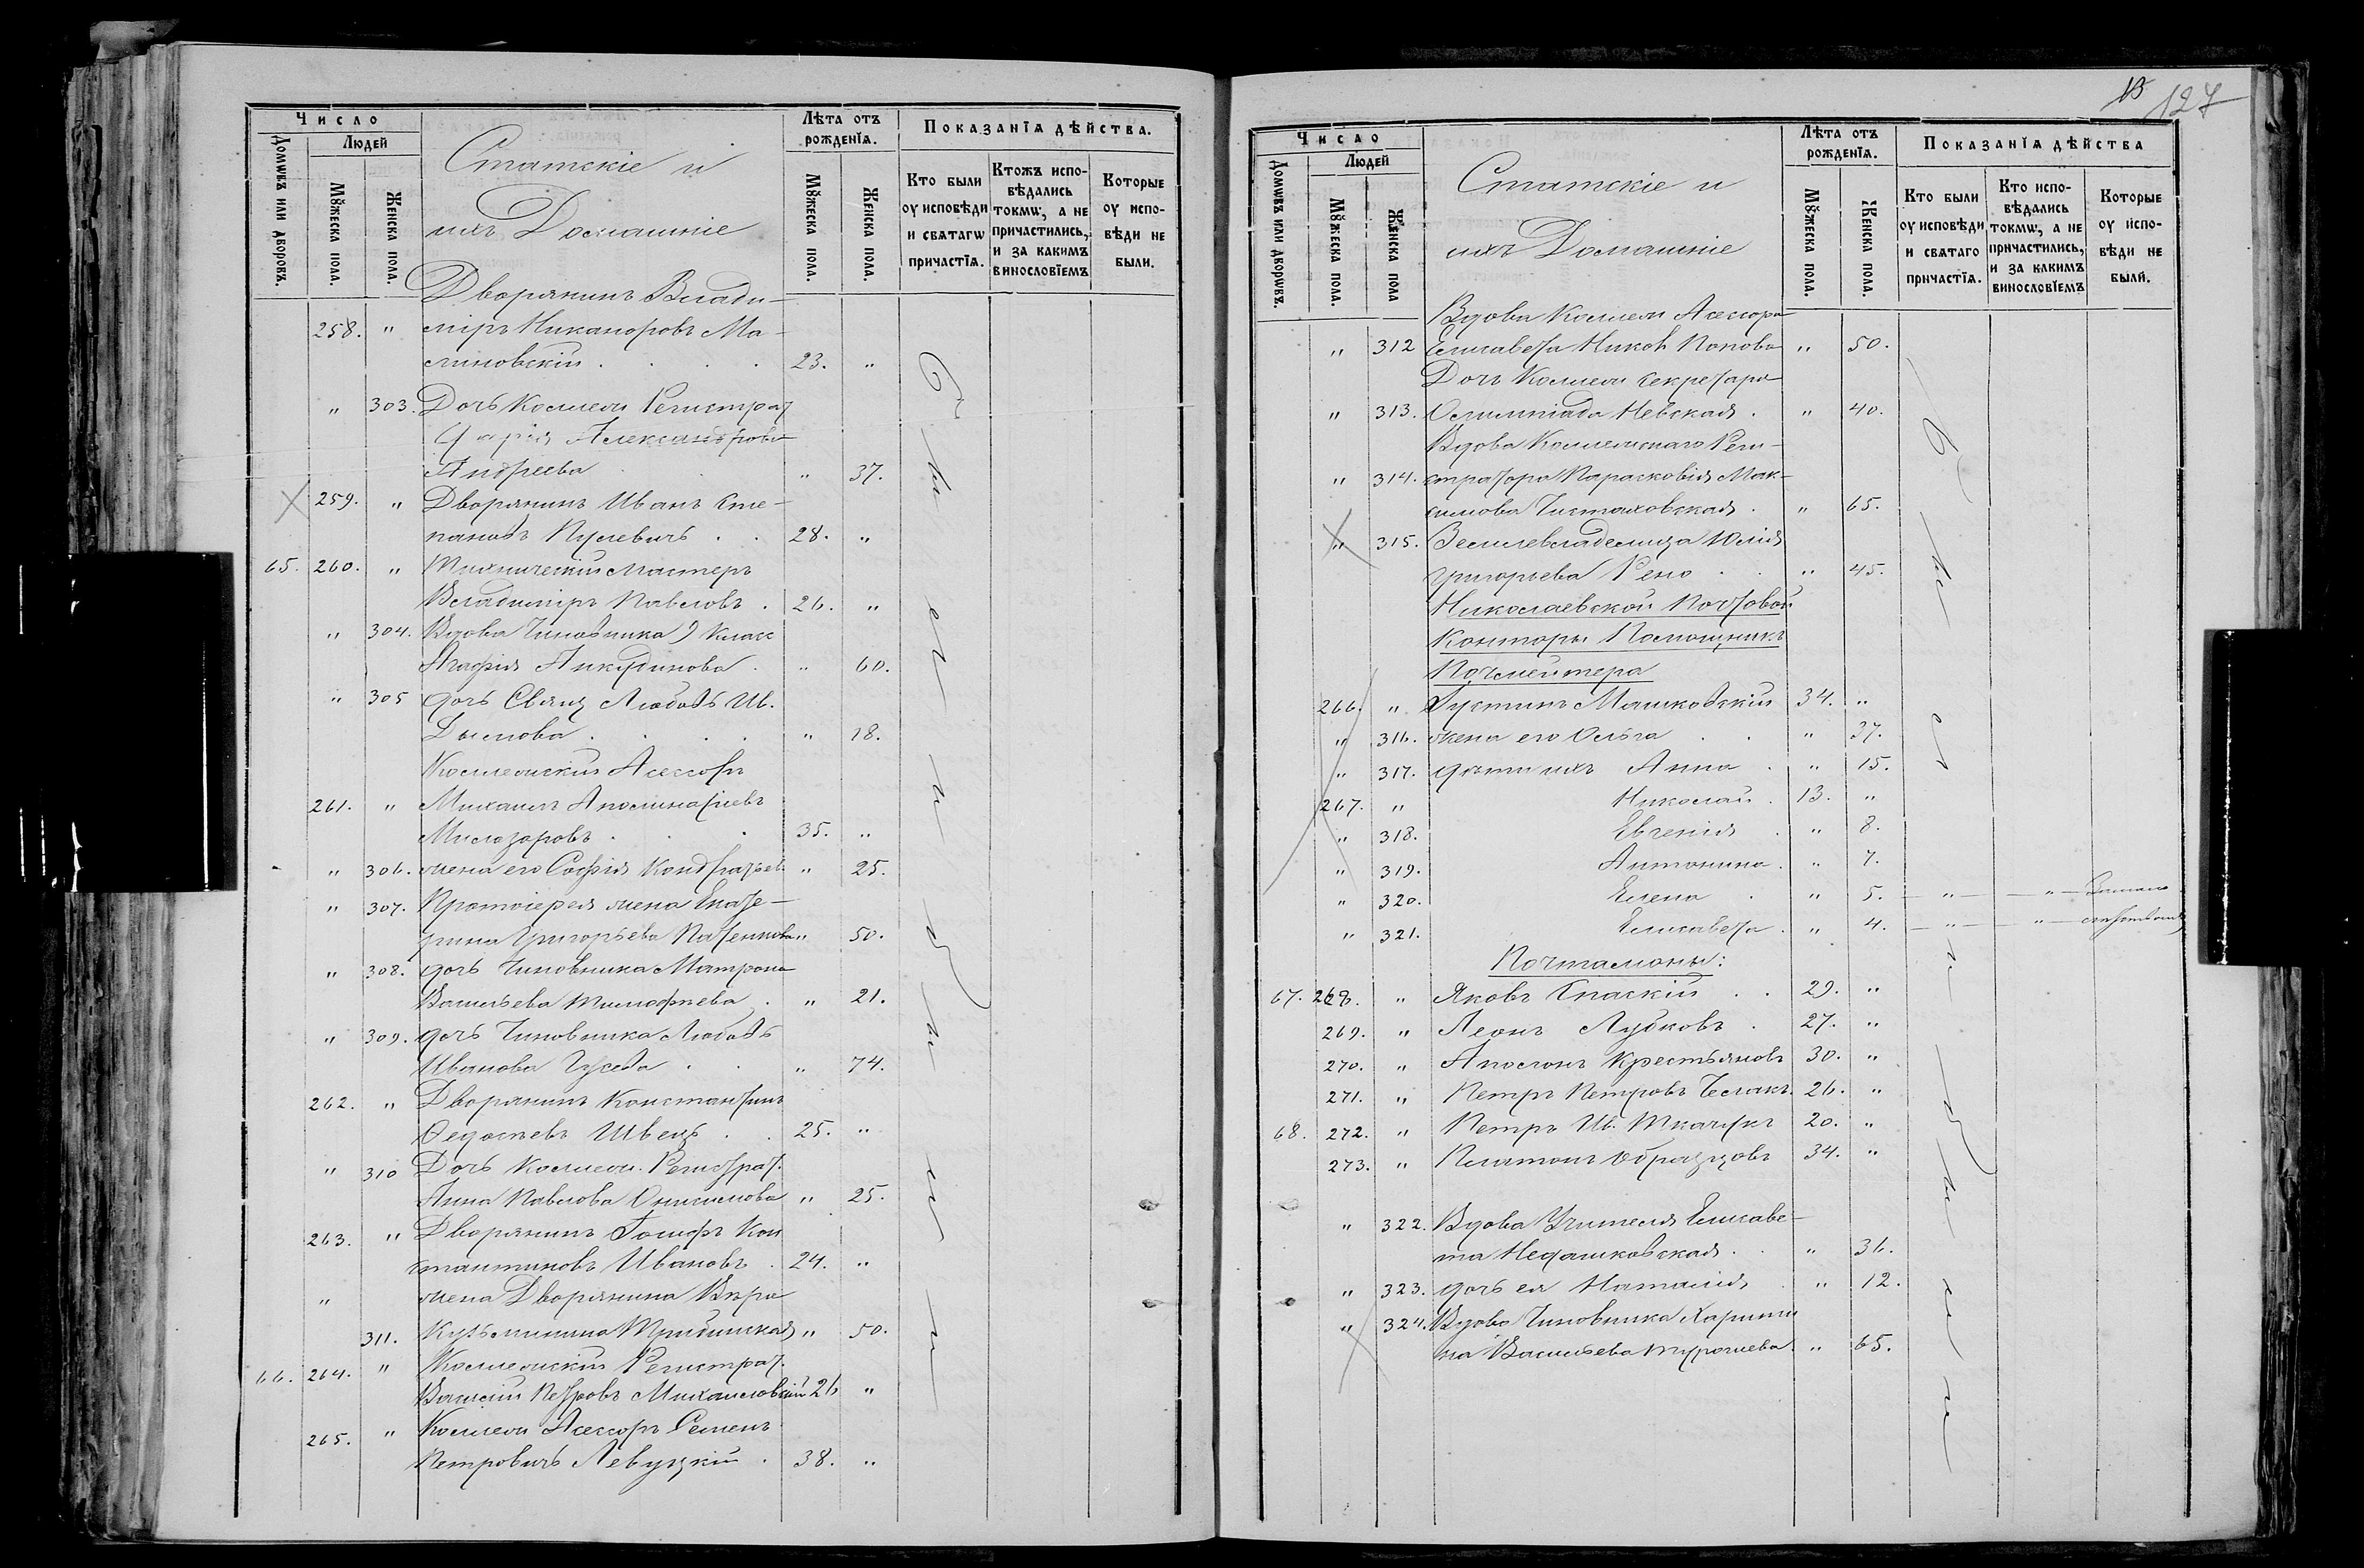 Число
Домωвъ или дворовъ.
Людей
Мꙋжеска пола.
Женска пола.
Статскіе и
ихъ Домашніе
Лѣта отъ рожденїѧ.
Мꙋжеска пола.
Женска пола.
Показанїѧ дѣйства.
Кто были оу исповѣди и свѧтагѡ причастїѧ.
Ктожъ исповѣдались токмѡ, а не причастились, и за какимъ винословїемъ
Которые оу исповѣди не были.
Дворянинъ Влади-
258. " міръ Никаноровъ Ма-
линовскій . . . . 23. "
" 303. Дочь Коллеж Регистрат
Дарія Александрова
Андреева . . " 37.
259. " Дворянинъ Иванъ Сте-
пановъ Пулевичъ . . 28. "
65. 260. " Техническій мастеръ
Владиміръ Павловъ . 26. "
" 304. Вдова Чиновника 9 Класс
Агафія Анкудинова . " 60.
" 305 дочь Свящ Любовь Ив.
Дымова . . . . " 18.
Коллежскій Асессоръ
261. " Михаилъ Аполинаріевъ
Милозаровъ . . . 35. "
" 306. жена его Софія Кондратьев. " 25.
" 307. Протоіерея жена Екате-
рина Григорьева Патенкова " 50.
" 308. дочь Чиновника Матрона
Васильева Тимофѣева . " 21.
" 309. дочь Чиновника Любовь
Иванова Гусева . . " 74.
262. " Дворянинъ Константинъ
Ѳедосѣевъ Швецъ . . 25. "
" 310 Дочь Коллеж. Регистрат.
Анна Павлова Онисимова " 25.
263. " Дворянинъ Іосифъ Кон
стантиновъ Ивановъ . 24. "
" жена Дворянина Вѣра
311. Кузьминина " 50.
66. 264. " Коллежскій Регистрат.
Василій Петровъ Михаиловскій 26 "
265. " Коллеж Асессоръ Семенъ
Петровичъ Левуцкій . 38. "
13 127
Число
Домωвъ или дворѡвъ.
Людей
Мꙋжеска пола.
Женска пола
Статскіе и
ихъ Домашніе
Лѣта отъ рожденїѧ.
Мꙋжеска пола.
Женска пола.
Показанїѧ дѣйства
Кто были оу исповѣди и свѧтаго причастїѧ.
Кто исповѣдались токмѡ, а не причастились, и за какимъ винословїемъ
Которые оу исповѣди не были.
Вдова Коллеж Асессора
" 312 Елисавета Ников Попова " 50.
Дочь Коллеж Секретаря
" 313. Олимпіада Невская . " 40.
Вдова Коллежскаго Реги-
" 314. стратора Парасковія Мак-
симова Чистаховская . " 65.
" 315. Землевладелица Юлія
Григорьева Рено . . " 45.
Николаевской Почтовой
Конторы Помощникъ
Почмейтера
266. " Іустинъ Машковскій 34. "
" 316. жена его Ольга . . " 37.
" 317. дѣти ихъ Анна . " 15.
267. " Николай . 13. "
" 318. Евгенія . " 8.
" 319. Антонина . " 7.
" 320. Елена . " 5. — " — — " —
" 321. Елисавета . " 4. — " — — " —
Почталіоны:
67. 268. " Яковъ Спаскій . . 29. "
269. " Леонъ Лубковъ . 27. "
270. " Аполонъ Крестьяновъ 30. "
271. " Петръ Петровъ Чеглакъ 26. "
68. 272. " Петръ Ив. Ткачукъ 20. "
273. " Платонъ Образцовъ 34. "
" 322. Вдова Учителя Елисаве-
та Недашковская . . " 36.
" 323. дочь ея Наталія . " 12.
" 324. Вдова Чиновника Харити
на Васильева Турочиева . " 65.